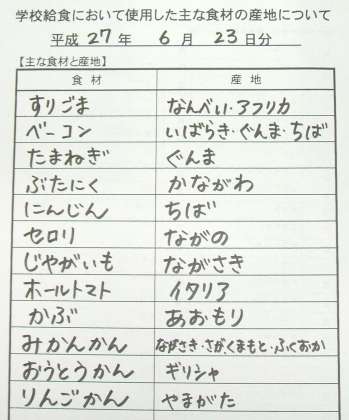 学校給食において使用した主な食材の産地について
平成 27 年 6 月 23 日分
【主な食材と産地】
食 材 産 地
すりごま なんべい・アフリカ
ベーコン いばらき・ぐんま・ちば
たまねぎ ぐんま
ぶたにく かながわ
にんじん ちば
セロリ ながの
じゃがいも ながさき
ホールトマト イタリア
かぶ あおもり
みかんかん ながさき・さがくまもと・ふくおか
おうとうかん ギリシャ
りんごかん やまがた